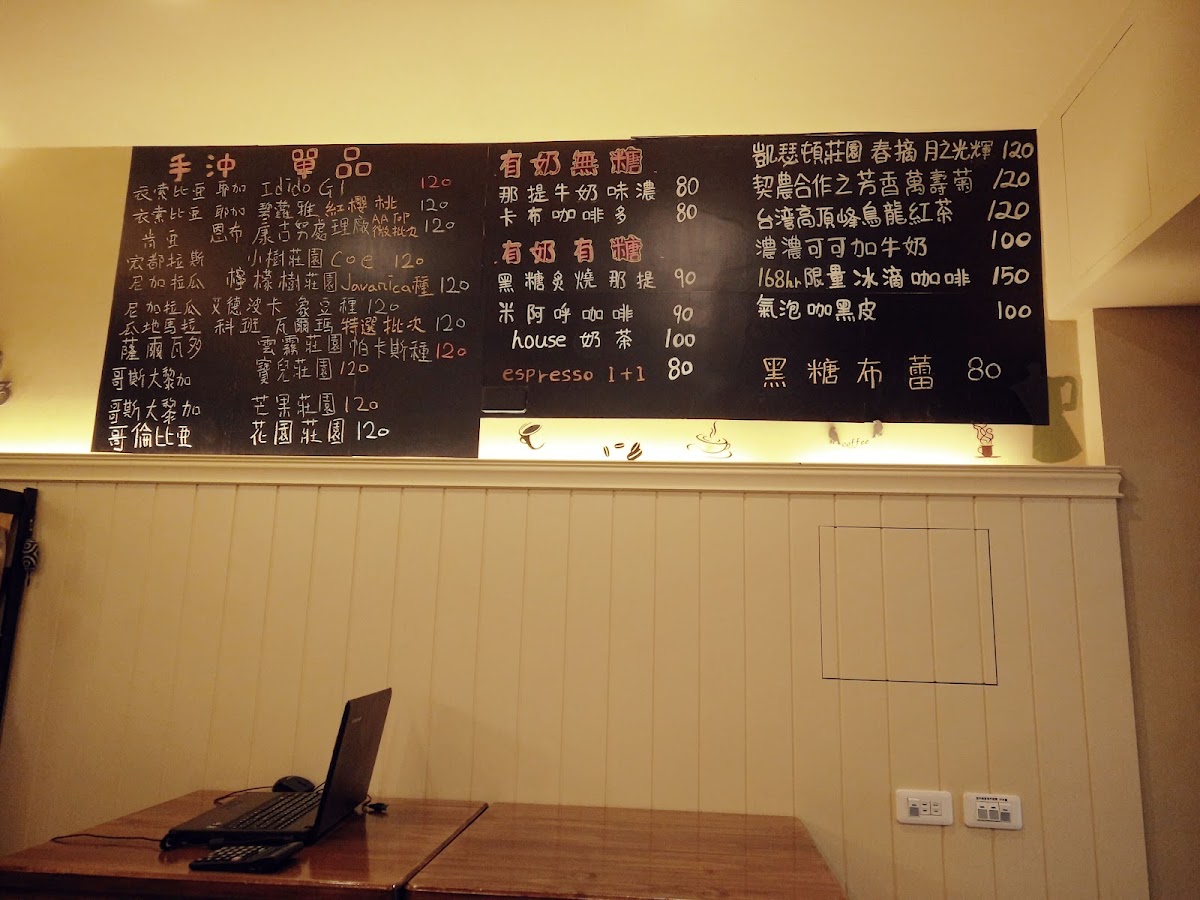 手沖 單品
衣索比亞 耶加 Idido G1 120
衣索比亞 耶加 碧蘿雅 紅櫻桃 120
肯亞 恩布 康古努處理廠 AA TOP 微批次 120
宏都拉斯 小樹莊園 coe 120
尼加拉瓜 檸檬樹莊園 Javanica種 120
尼加拉瓜 艾德波卡 象豆種 120
瓜地馬拉 科班 瓦爾瑪 特選批次 120
薩爾瓦多 雲霧莊園帕卡斯種 120
哥斯大黎加 寶兒莊園 120
哥斯大黎加 芒果莊園 120
哥倫比亞 花園莊園 120
有奶無糖
那提牛奶味濃 80
卡布咖啡多 80
有奶有糖
黑糖炙燒那提 90
米阿呼咖啡 90
house 奶茶 100
espresso 1+1 80
凱瑟頓莊園 春摘 月之光輝 120
契農合作之芳香萬壽菊 120
台灣高頂峰烏龍紅茶 120
濃濃可可加牛奶 100
168hr限量冰滴咖啡 150
氣泡咖黑皮 100
黑糖布蕾 80
coffee